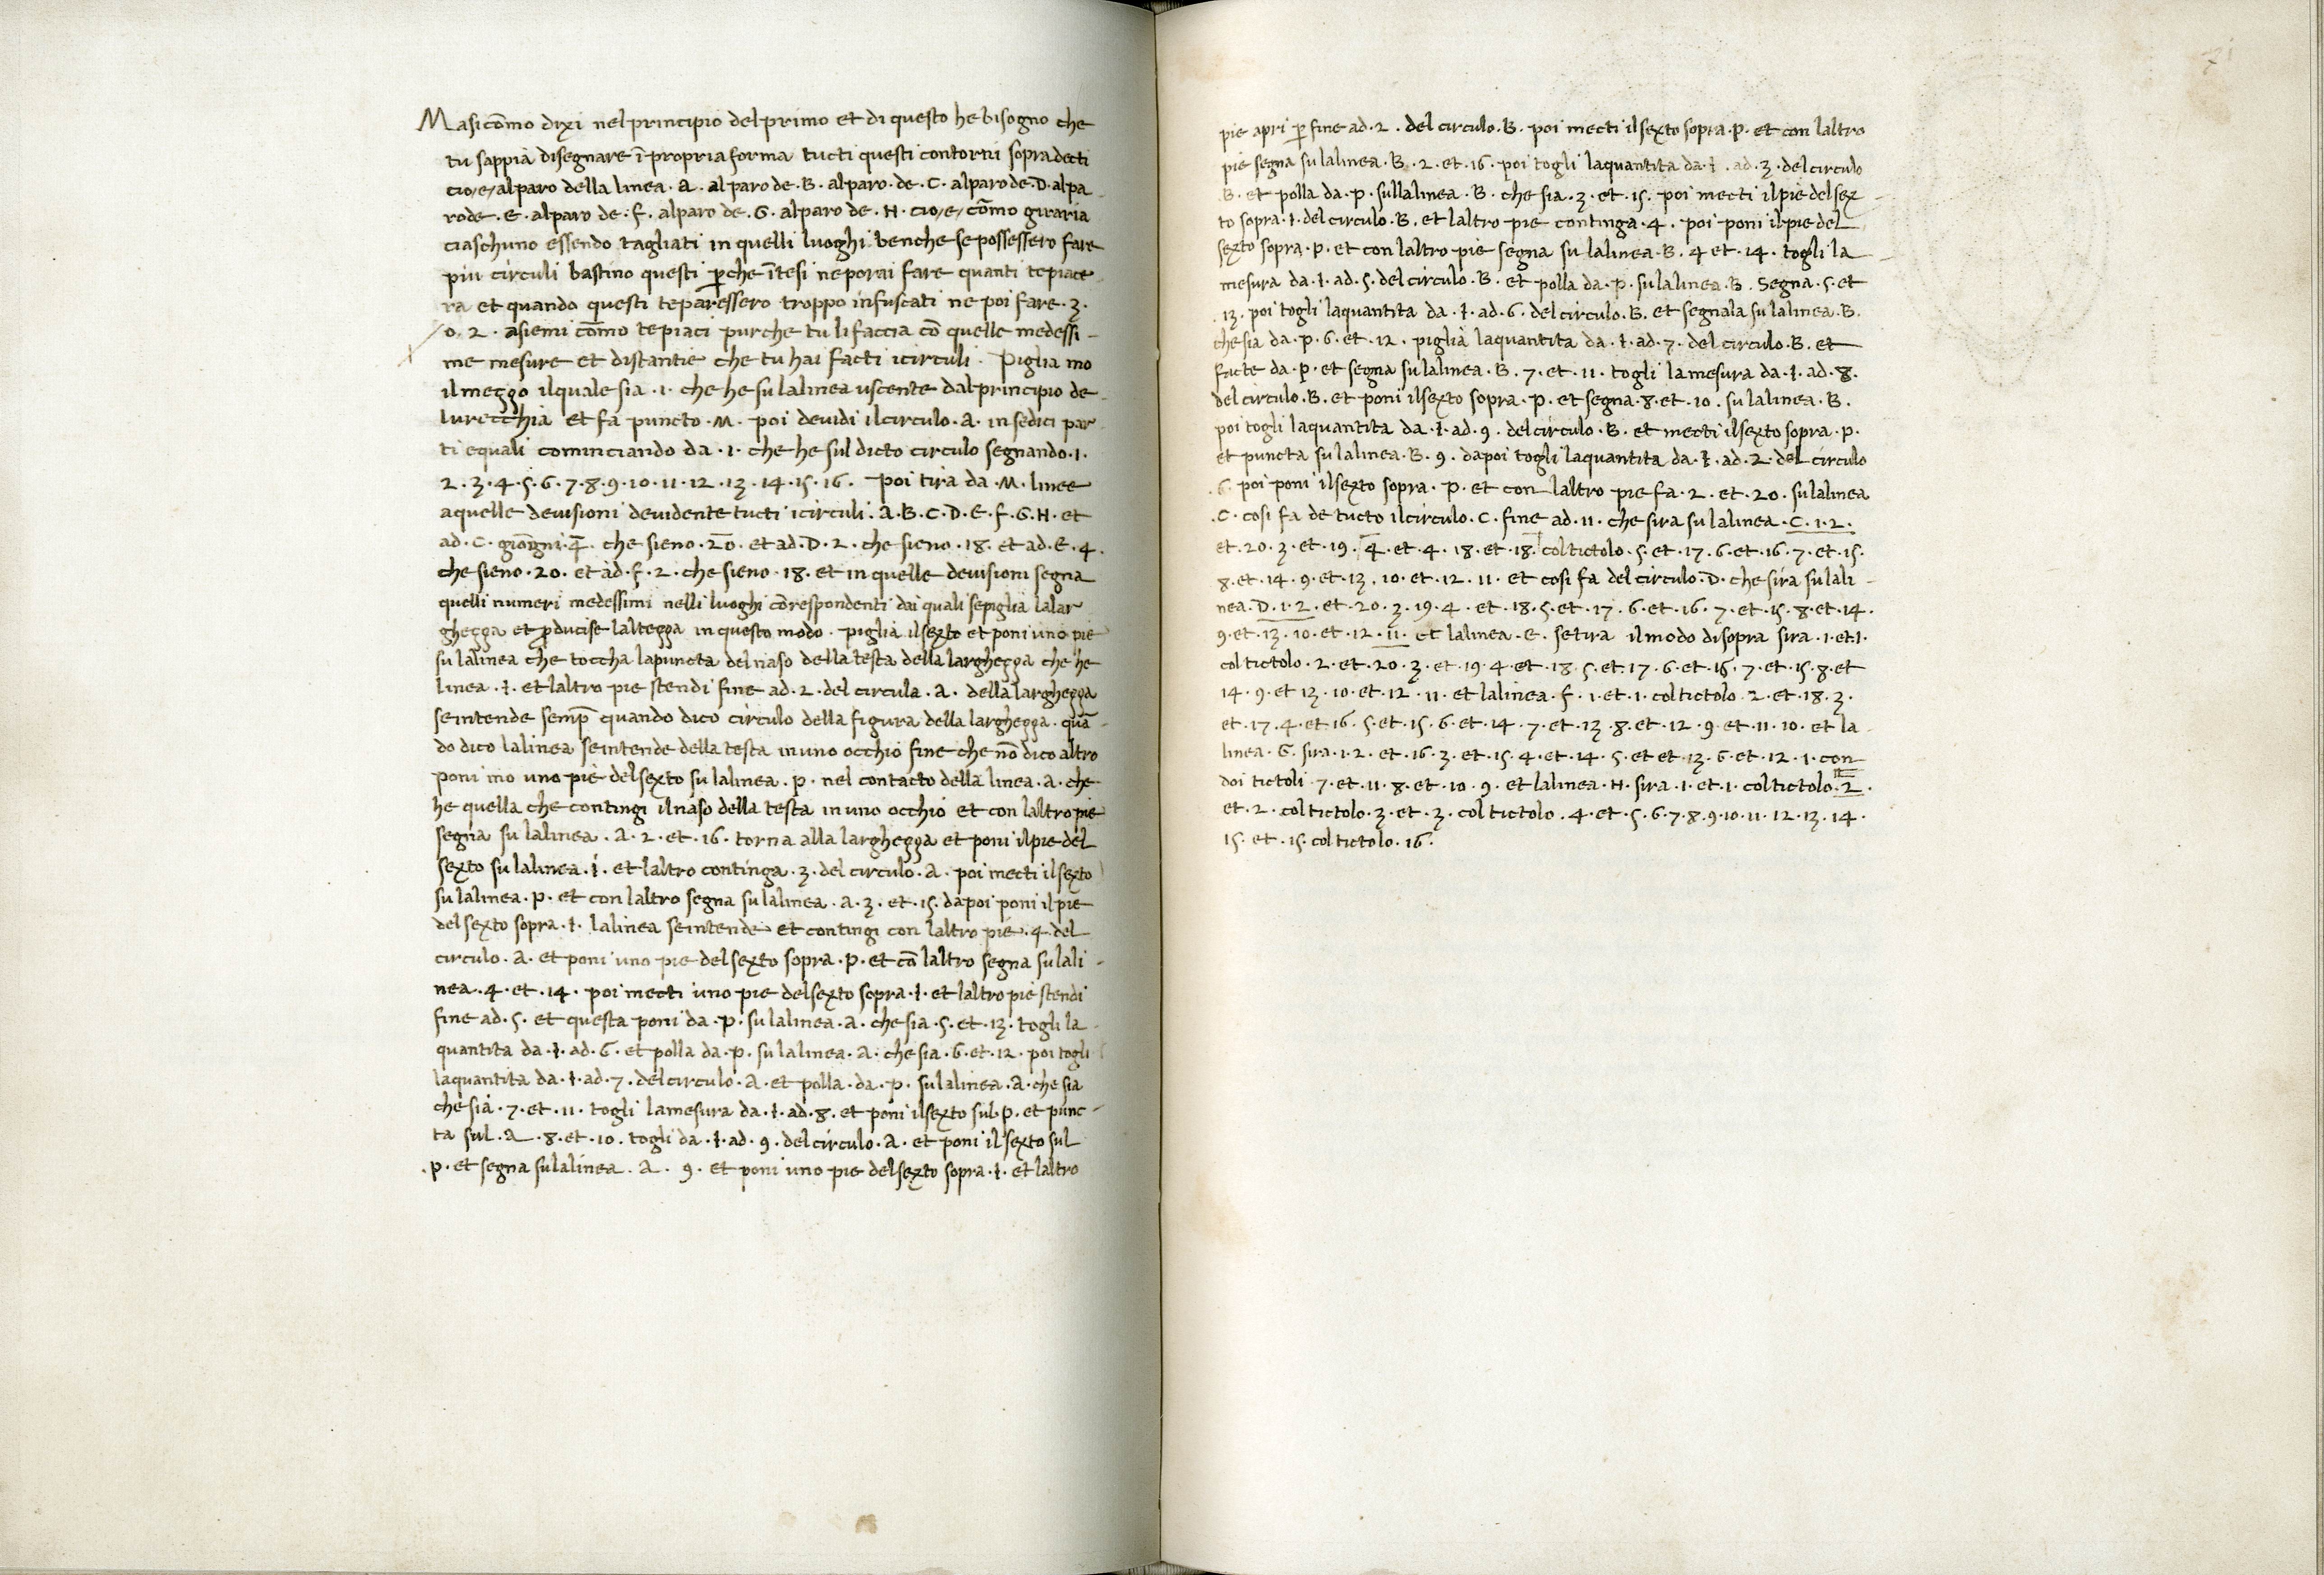 Masicōmo dixi nel principio del primo et di questo he bisogno che
tu sappia disegnare ī propria forma tucti questi contorni sopradecti
cio/e/ alparo della linea · A · alparo de · B · alparo · de · C · alparo de · D · alpa
rode · E · alparo de · F · alparo de · G · alparo de · H · cio/e/ cōmo giraria
ciaschuno essendo tagliati in quelli luoghi benche se possessero fare
piu circuli bastino questi p̄che ītesi ne porai fare quanti te piace-
ra et quando questi te paressero troppo infuscati ne poi fare · 3 ·
/o · 2 · asiemi cōmo te piaci purche tu li faccia cō quelle medessi-
me mesure et distantie che tu hai facti i circuli · Piglia mo
il meçço il quale sia · 1 · che he su la linea uscente dal principio de-
lurecchia et fa puncto · M · poi devidi il circulo · A · in sedici par-
ti equali cominciando da · 1 · che he sul dicto circulo segnando · 1 ·
2 · 3 · 4 · 5 · 6 · 7 · 8 · 9 · 10 · 11 · 12 · 13 · 14 · 15 · 16 · Poi tira da · M · linee
a quelle devisioni devidente tucti i circuli · A · B · C · D · E · F · G · H · et
ad · C · giōgni · 4̄ · che sieno · 20 · et ad · D · 2 · che sieno · 18 · et ad · E · 4 ·
che sieno · 20 · et ad · F · 2 · che sieno · 18 · et in quelle devisioni segna
quelli numeri medessimi nelli luoghi cōrespondenti dai quali se piglia la lar
gheçça et p̄ducise lalteçça in questo modo · piglia il sexto et poni uno pie
su la linea che toccha la puncta del naso della testa della largheçça che he
linea · ɫ · et laltro pie stendi fine ad · 2 · del circula · A · della largheçça
se intende semp̄ quando dico circulo della figura della largheçça · quā-
do dico la linea se intende della testa in uno occhio fine che nō dico altro
poni mo uno pie del sexto su la linea · P · nel contacto della linea · A · che
he quella che contingi il naso della testa in uno occhio et con laltro pie
segna su la linea · A · 2 · et · 16 · torna alla largheçça et poni il pie del
sexto su la linea · ɫ · et laltro continga · 3 · del circulo · A · poi mecti il sexto
su la linea · P · et con laltro segna su la linea · A · 3 · et · 15 · dapoi poni il pie
del sexto sopra · ɫ · la linea se intende et contingi con laltro pie · 4 · del
circulo · A · et poni uno pie del sexto sopra · P · et cō laltro segna su la li-
nea · 4 · et · 14 · poi mecti uno pie del sexto sopra · ɫ · et laltro pie stendi
fine ad · 5 · et questa poni da · P · su la linea · A · che sia · 5 · et · 13 · togli la
quantita da · ɫ · ad · 6 · et polla da · P · su la linea · A · che sia · 6 · et · 12 · poi togli
la quantita da · ɫ · ad · 7 · del circulo · A · et polla · da · P · su la linea · A · che sia
che sia · 7 · et · 11 · togli la mesura da · ɫ · ad · 8 · et poni il sexto sul · P · et punc-
ta sul · A · 8 · et · 10 · togli da · ɫ · ad · 9 · del circulo · A · et poni il sexto sul
· P · et segna su la linea · A · 9 · et poni uno pie del sexto sopra · ɫ · et laltro
pie apri p̄ fine ad · 2 · del circulo · B · poi mecti il sexto sopra · P · et con laltro
pie segna su la linea · B · 2 · et · 16 · poi togli la quantita da · ɫ · ad · 3 · del circulo
· B · et polla da · P · sulla linea · B · che sia · 3 · et · 15 · poi mecti il pie del sex-
to sopra · ɫ · del circulo · B · et laltro pie continga · 4 · poi poni il pie del
sexto sopra · P · et con laltro pie segna su la linea · B · 4 et · 14 · togli la
mesura da · ɫ · ad · 5 · del circulo · B · et polla da · P · su la linea · B · Segna · 5 · et
· 13 · poi togli la quantita da · ɫ · ad · 6 · del circulo · B · et segnala su la linea · B ·
che sia da · P · 6 · et · 12 · piglia la quantita da · ɫ · ad · 7 · del circulo · B · et
facte da · P · et segna su la linea · B · 7 · et · 11 · togli la mesura da · ɫ · ad · 8 ·
del circulo · B · et poni il sexto sopra · P · et segna · 8 · et · 10 · su la linea · B ·
poi togli la quantita da · ɫ · ad · 9 · del circulo · B · et mecti il sexto sopra · P ·
et puncta su la linea · B · 9 · dapoi togli la quantita da · ɫ · ad · 2 · del circulo
· C · poi poni il sexto sopra · P · et con laltro pie fa · 2 · et · 20 · su la linea
· C · cosi fa de tucto il circulo · C · fine ad · 11 · che sira su la linea · C · 1 · 2 ·
et · 20 · 3 · et · 19 · 4̄ · et · 4 · 18 · et · 18 · col tictolo · 5 · et · 17 · 6 · et · 16 · 7 · et · 15 ·
8 · et · 14 · 9 · et · 13 · 10 · et · 12 · 11 · et cosi fa del circulo · D · che sira su la li-
nea · D · 1 · 2 · et · 20 · 3 · 19 · 4 · et · 18 · 5 · et · 17 · 6 · et · 16 · 7 · et · 15 · 8 · et · 14 ·
9 · et · 13 · 10 · et · 12 · 11 · et la linea · E · se tira il modo di sopra sira · 1 · et · 1 ·
col tictolo · 2 · et · 20 · 3 · et · 19 · 4 · et · 18 · 5 · et · 17 · 6 · et · 16 · 7 · et · 15 · 8 · et
14 · 9 · et 13 · 10 · et · 12 · 11 · et la linea · F · 1 · et · 1 · col tictolo · 2 · et · 18 · 3 ·
et · 17 · 4 · et · 16 · 5 · et · 15 · 6 · et · 14 · 7 · et · 13 · 8 · et · 12 · 9 · et · 11 · 10 · et la
linea · G · sira · 1 · 2 · et · 16 · 3 · et · 15 · 4 · et · 14 · 5 · et et · 13 · 6 · et · 12 · 1 · con
doi tictoli · 7 · et · 11 · 8 · et · 10 · 9 · et la linea · H · sira · 1 · et · 1 · col tictolo · 2 ·
et · 2 · col tictolo · 3 · et · 3 · col tictolo · 4 · et · 5 · 6 · 7 · 8 · 9 · 10 · 11 · 12 · 13 · 14 ·
15 · et · 15 · col tictolo · 16 ·